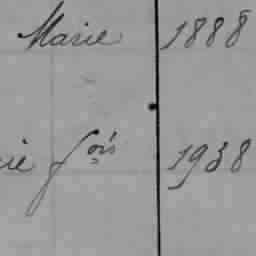 Marie 1888
rie fois 1938